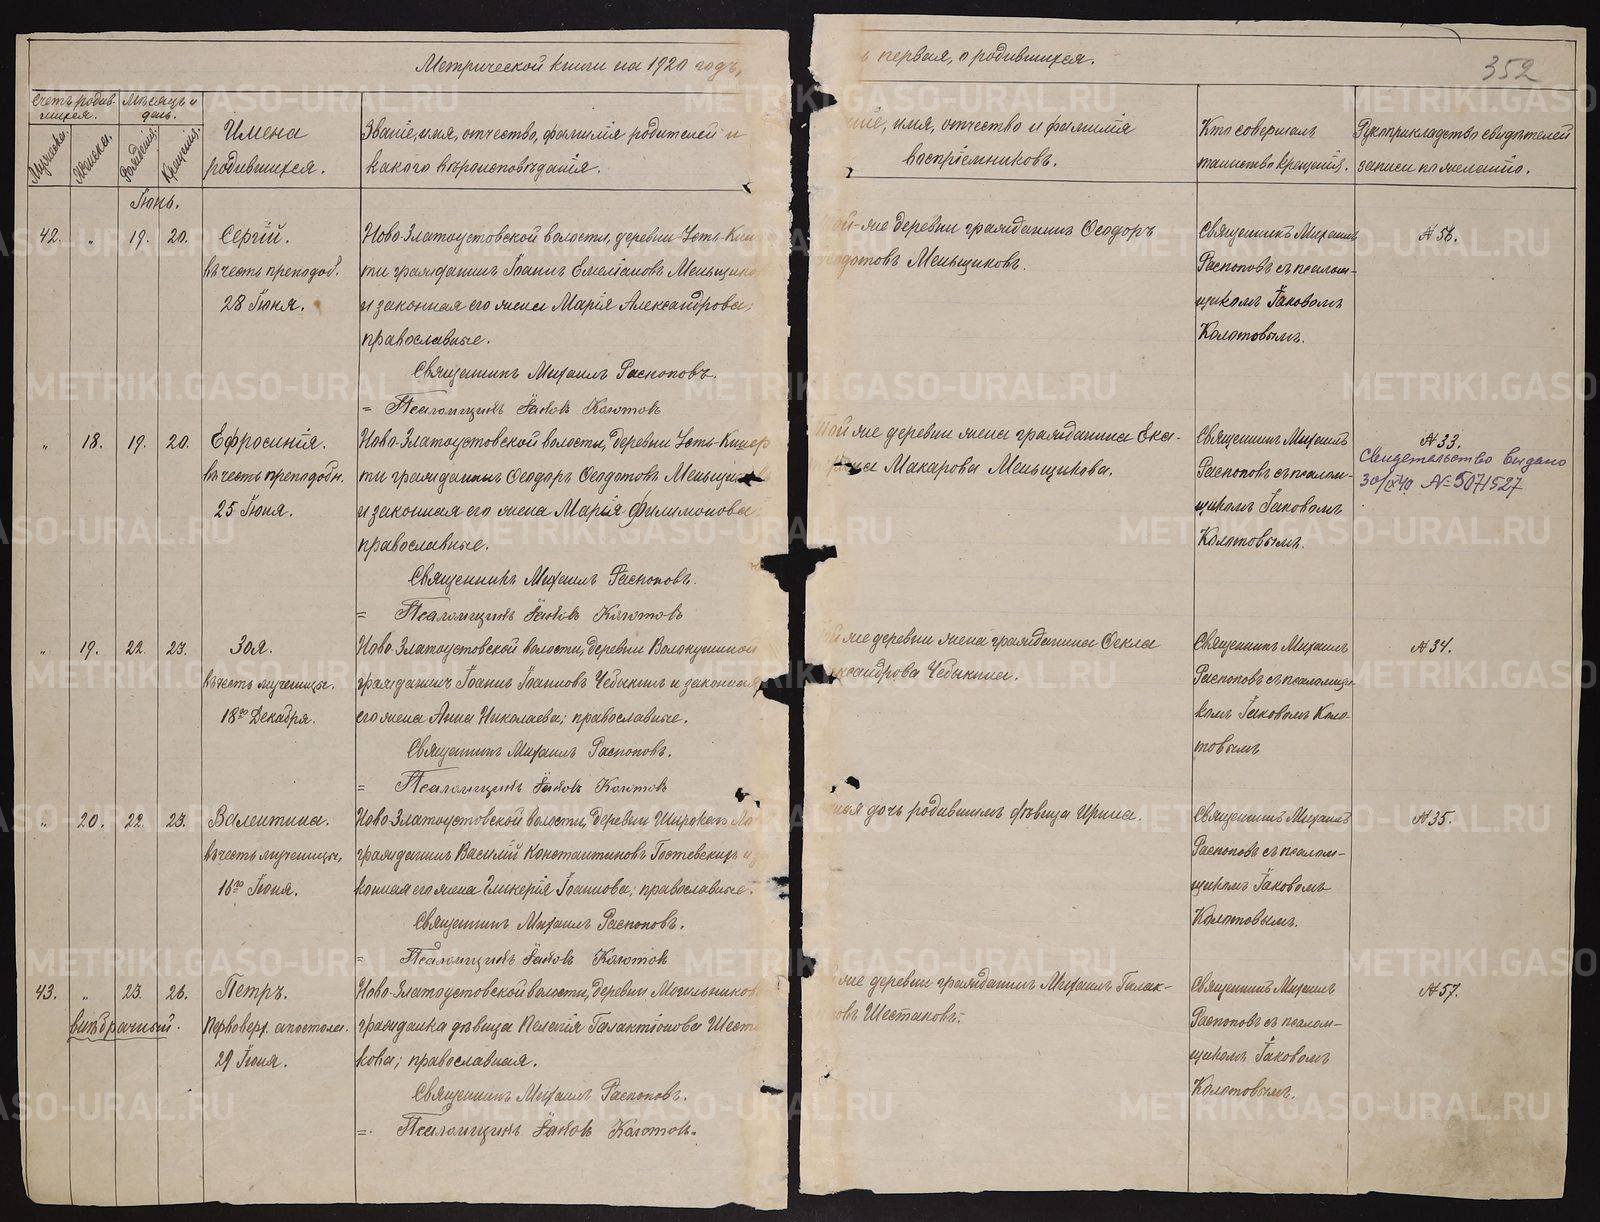 Метрической книги на 1920 годъ,
первая, о родившихся.
352
Счетъ родив-
шихся.
Мѣсяцъ и
день.
Мужеска.
Женска.
Рожденія.
Крещенія.
Имена
родившихся.
Званіе, имя, отчество, фамилія родителей и
какого вѣроисповѣданія.
имя, отчество и фамилія
воспріемниковъ.
Кто совершалъ
таинство крещенія.
Рукоприкладство свидѣтелей
записи по желанію.
Іюнь.
42. „ 19. 20.
Сергій.
въ честь преподоб.
28 Іюня.
Ново-Златоустовской волости, деревни Усть-Кише
ти гражданинъ Іоаннъ Емеліановъ Меньщиков
и законная его жена Марія Александрова,
православные.
Священникъ Михаилъ Распоповъ.
= Псаломщикъ Іаковъ Колотовъ
ой-же деревни гражданинъ Ѳеодоръ
едотовъ Меньщиковъ.
Священникъ Михаилъ
Распоповъ съ псалом-
щикомъ Іаковомъ
Колотовымъ.
№ 56.
„ 18. 19. 20.
Ефросинія.
въ честь преподобн.
25 Іюня.
Ново-Златоустовской волости, деревни Усть-Кишер
ти гражданинъ Ѳеодоръ Ѳеодотовъ Меньщиков
и законная его жена Марія Филимонова,
православные.
Священникъ Михаилъ Распоповъ.
= Псаломщикъ Іаковъ Колотовъ
Той же деревни жена гражданина Ека-
рина Макарова Меньщикова.
Священникъ Михаилъ
Распоповъ съ псалом-
щикомъ Іаковомъ
Колотовымъ.
№ 33.
Свидетельство выдано
30/IX 40. № 5071527
„ 19. 22. 23.
Зоя.
въ честь мученицы.
18го Декабря.
Ново-Златоустовской волости, деревни Волокушиной
гражданинъ Іоаннъ Іоанновъ Чебыкинъ и законная
его жена Анна Николаева; православные.
Священникъ Михаилъ Распоповъ.
= Псаломщикъ Іаковъ Колотовъ
ой же деревни жена гражданина Ѳекла
ександрова Чебыкина.
Священникъ Михаилъ
Распоповъ съ псаломщи-
комъ Іаковомъ Коло-
товымъ
№ 34.
„ 20. 22. 23.
Валентина.
въ честь мученицы,
16го Іюня.
Ново-Златоустовской волости, деревни Широкаго Ло
гражданинъ Василій Константиновъ Гостевскихъ и за
конная его жена Гликерія Іоаннова; православные.
Священникъ Михаилъ Распоповъ.
= Псаломщикъ Іаковъ Колотовъ
ная дочь родившимъ дѣвица Ирина.
Священникъ Михаилъ
Распоповъ съ псалом-
щикомъ Іаковомъ
Колотовымъ.
№ 35.
43. „ 25. 26.
внѣбрачный.
Петръ.
Первоверх. апостола.
29 Іюня.
Ново-Златоустовской волости, деревни Могильников
гражданка дѣвица Пелагія Галактіонова Шеста
кова; православная.
Священникъ Михаилъ Распоповъ.
= Псаломщикъ Іаковъ Колотовъ.
же деревни гражданинъ Михаилъ Галак-
новъ Шестаковъ.
Священникъ Михаилъ
Распоповъ съ псалом-
щикомъ Іаковомъ
Колотовымъ.
№ 57.
METRIKI.GASO-URAL.RU